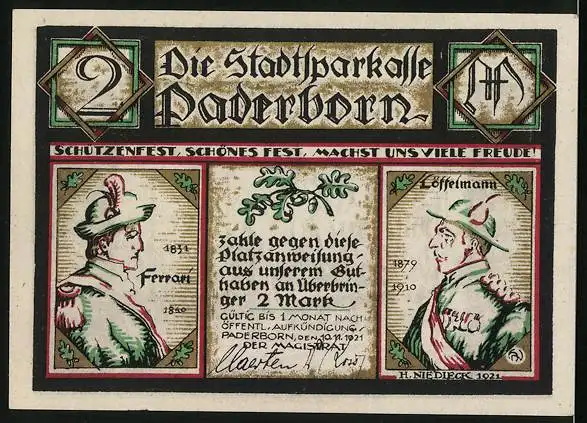 2
Die Stadtsparkasse
Paderborn
M
SCHÜTZENFEST, SCHÖNES FEST, MACHST UNS VIELE FREUDE!
1831
Ferrari
1840
zahle gegen diese
Platzanweisung
aus unserem Gut-
haben an Überbrin-
ger 2 Mark
GÜLTIG BIS 1 MONAT NACH
ÖFFENTL. AUFKÜNDIGUNG
PADERBORN, DEN 10.11.1921
DER MAGISTRAT
Löffelmann
1879
1910
H. NIEDIECK 1921